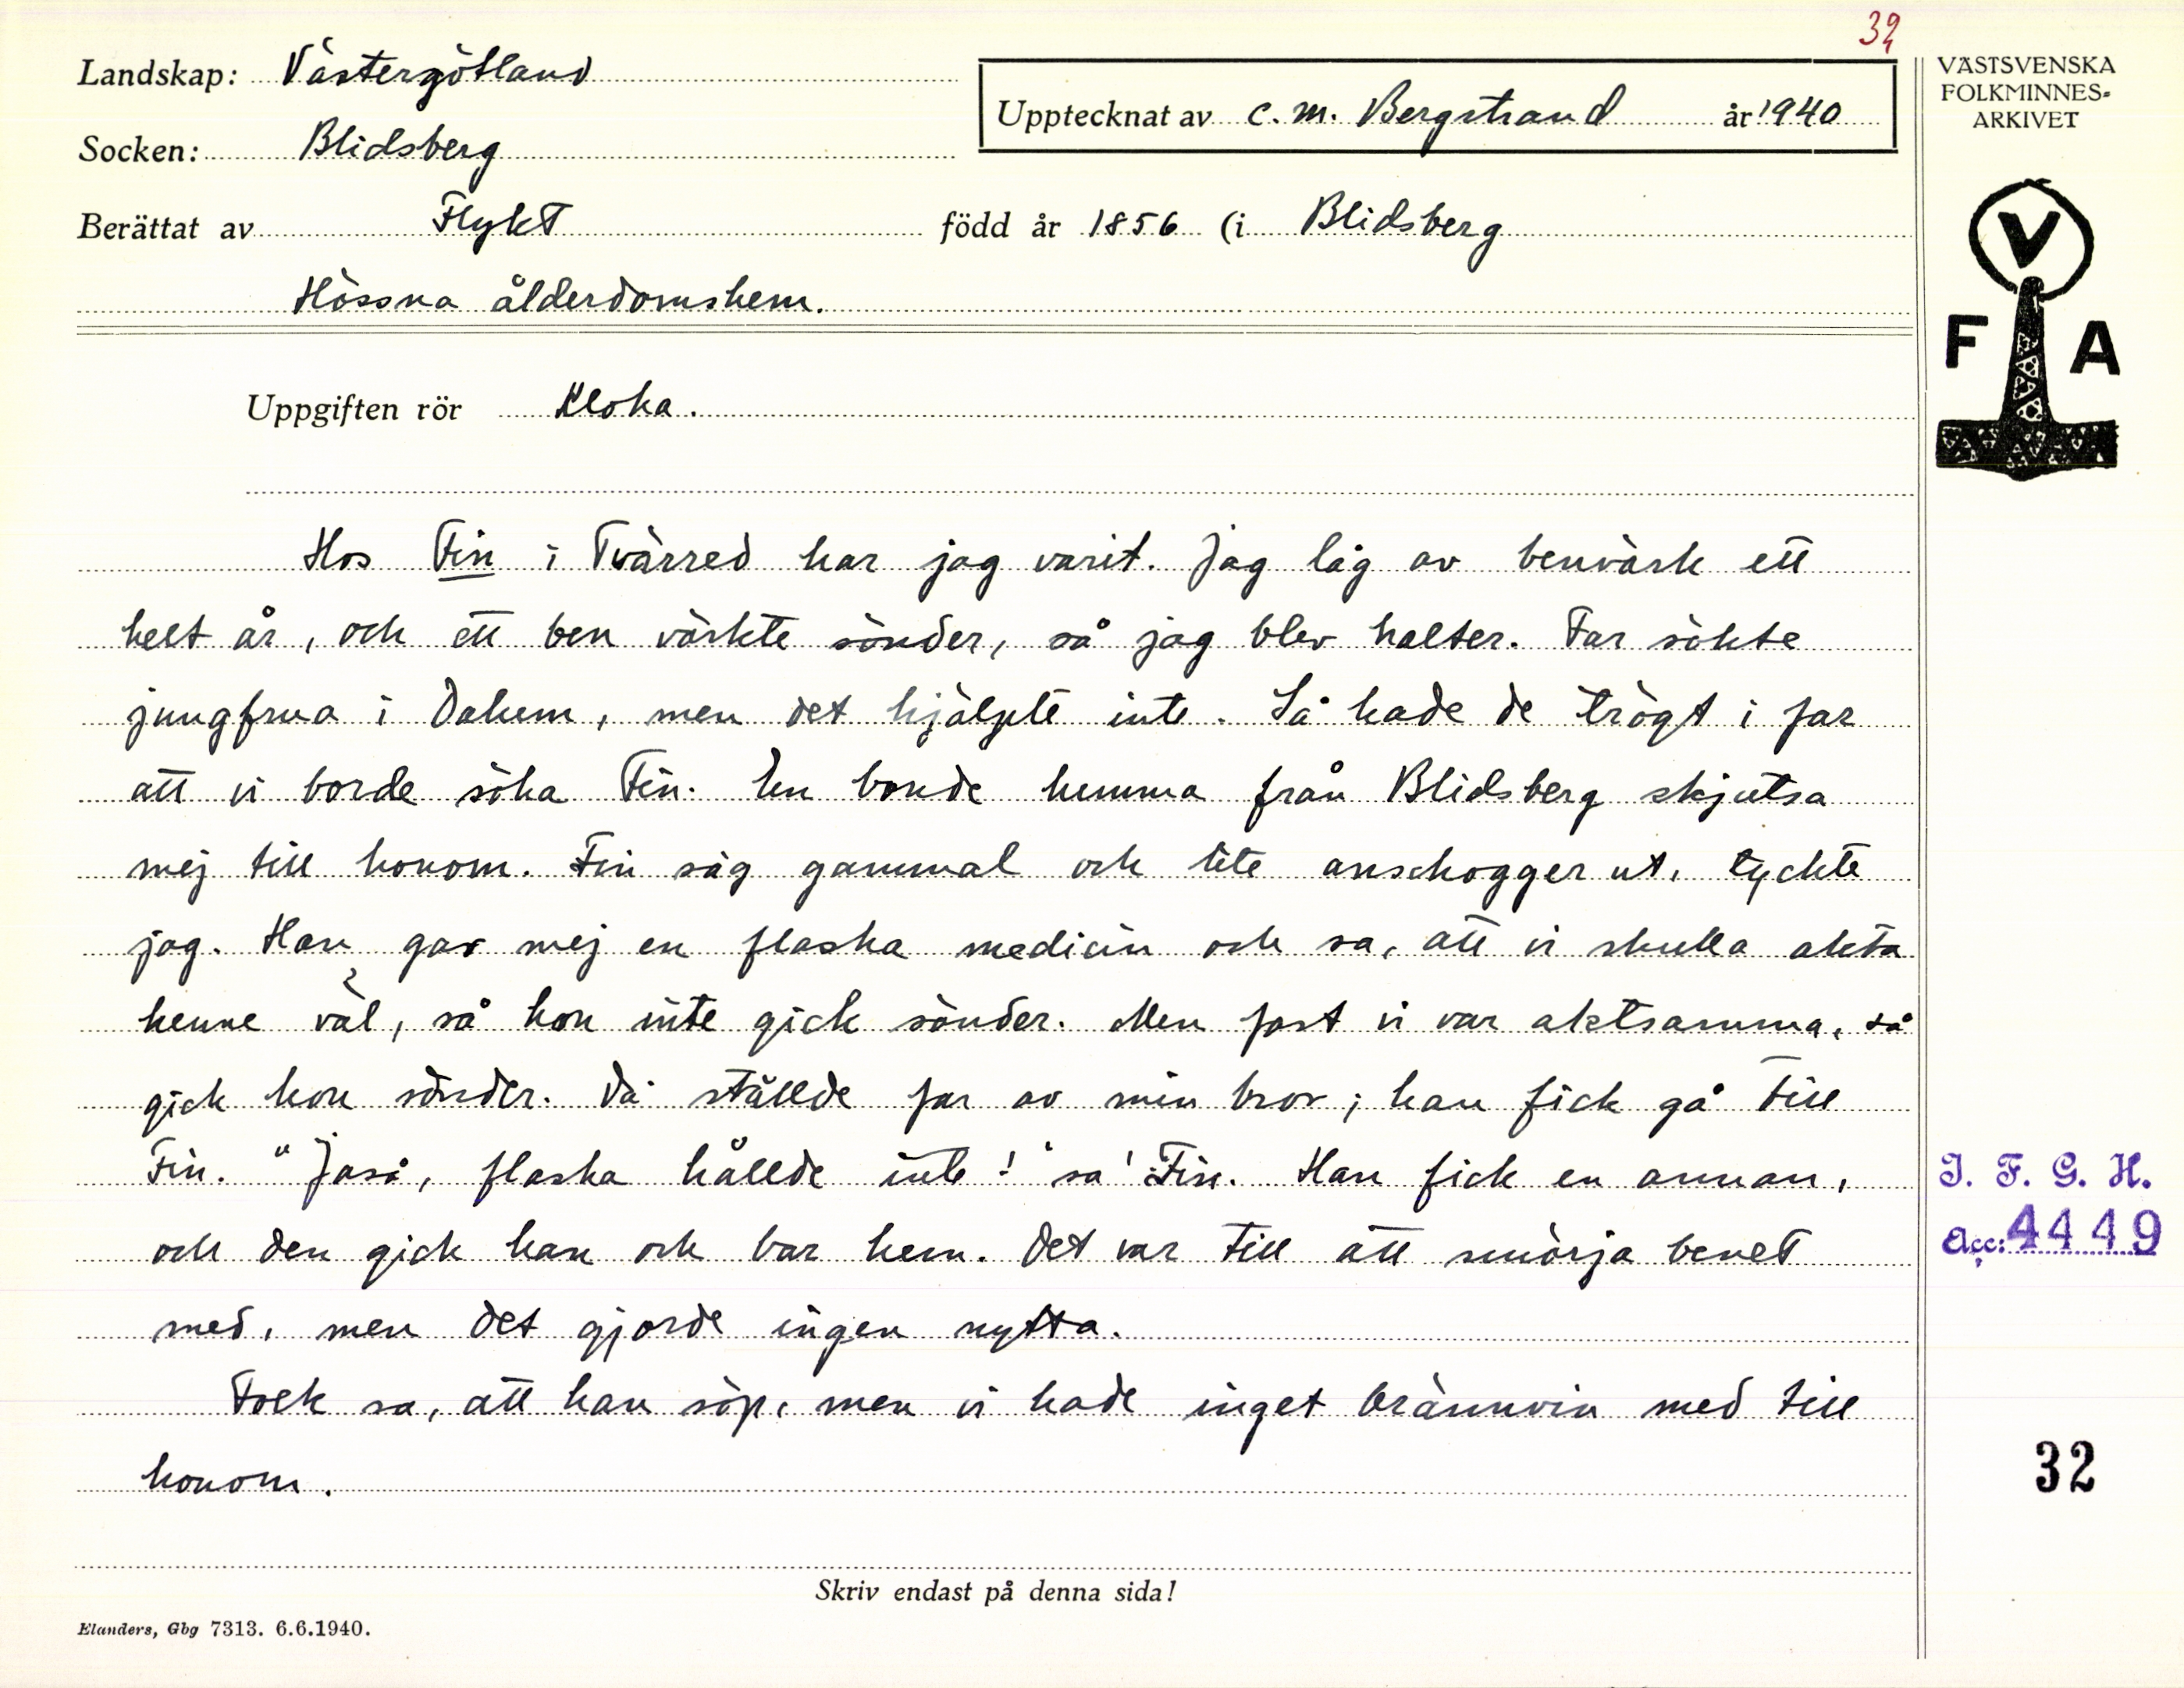 32
Landskap: Västergötland
Upptecknat av C. M. Bergstrand år 1940
Socken: Blidsberg
Berättat av Flykt född år 1856 (i Blidsberg
Hössna ålderdomshem.
VÄSTSVENSKA
FOLKMINNES-
ARKIVET
V
F A
Uppgiften rör Kloka.
Hos Fin i Tvärred har jag varit. Jag låg av benvärk ett
helt år, och ett ben värkte sönder, så jag blev halter. Far sökte
jungfrua i Dalum, men det hjälpte inte. Så hade de trögt i far
att vi borde söka Fin. En bonde hemma från Blidsberg skjutsa
mej till honom. Fin såg gammal och lite anschogger ut, tyckte
jag. Han gav mej en flaska medicin och sa, att vi skulla akta
henne väl, så hon inte gick sönder. Men fast vi var aktsamma, så
gick hon sönder. Då ställde far av min bror; han fick gå till
Fin. "Jaså, flaska hållde inte!" sa' Fin. Han fick en annan,
och den gick han och bar hem. Det var till att smörja benet
med, men det gjorde ingen nytta.
Folk sa, att han söp, men vi hade inget brännvin med till
honom.
I. F. G. H.
Acc: 4449
32
Skriv endast på denna sida!
Elanders, Gbg 7313. 6.6.1940.